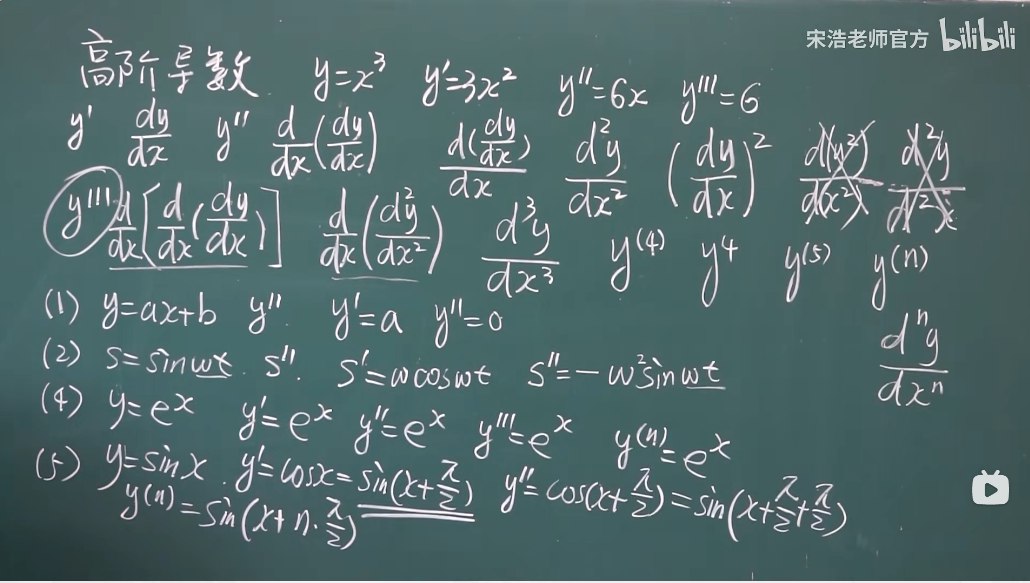 宋浩老师官方 bilibili
高阶导数 y=x³ y'=3x² y''=6x y'''=6
y' dy/dx y'' d/dx(dy/dx) d(dy/dx)/dx d²y/dx² (dy/dx)² d(y²)/d(x²) d²y/d²x
y''' d/dx[d/dx(dy/dx)] d/dx(d²y/dx²) d³y/dx³ y⁽⁴⁾ y⁴ y⁽⁵⁾ y⁽ⁿ⁾
(1) y=ax+b y'' y'=a y''=0
dⁿy/dxⁿ
(2) s=sinωt. s''. s'=ωcosωt s''=-ω²sinωt
(4) y=eˣ y'=eˣ y''=eˣ y'''=eˣ y⁽ⁿ⁾=eˣ
(5) y=sinx. y'=cosx=sin(x+π/2) y''=cos(x+π/2)=sin(x+π/2+π/2)
y⁽ⁿ⁾=sin(x+n·π/2)